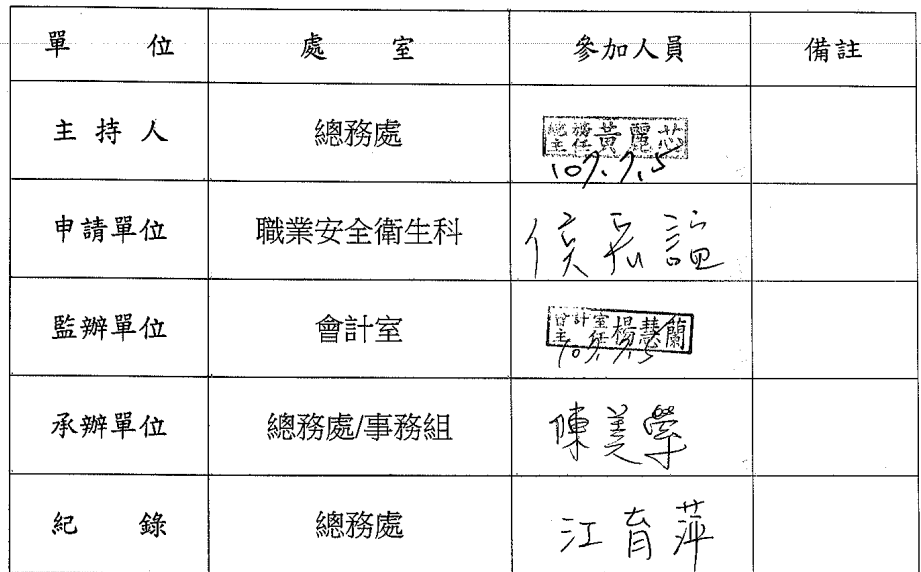 單位 處室 參加人員 備註
主持人 總務處 總務主任 黃麗芯
107.7.5
申請單位 職業安全衛生科 侯
監辦單位 會計室 會計室主任 楊慧蘭
107.7.5
承辦單位 總務處/事務組 陳美
紀錄 總務處 江育萍